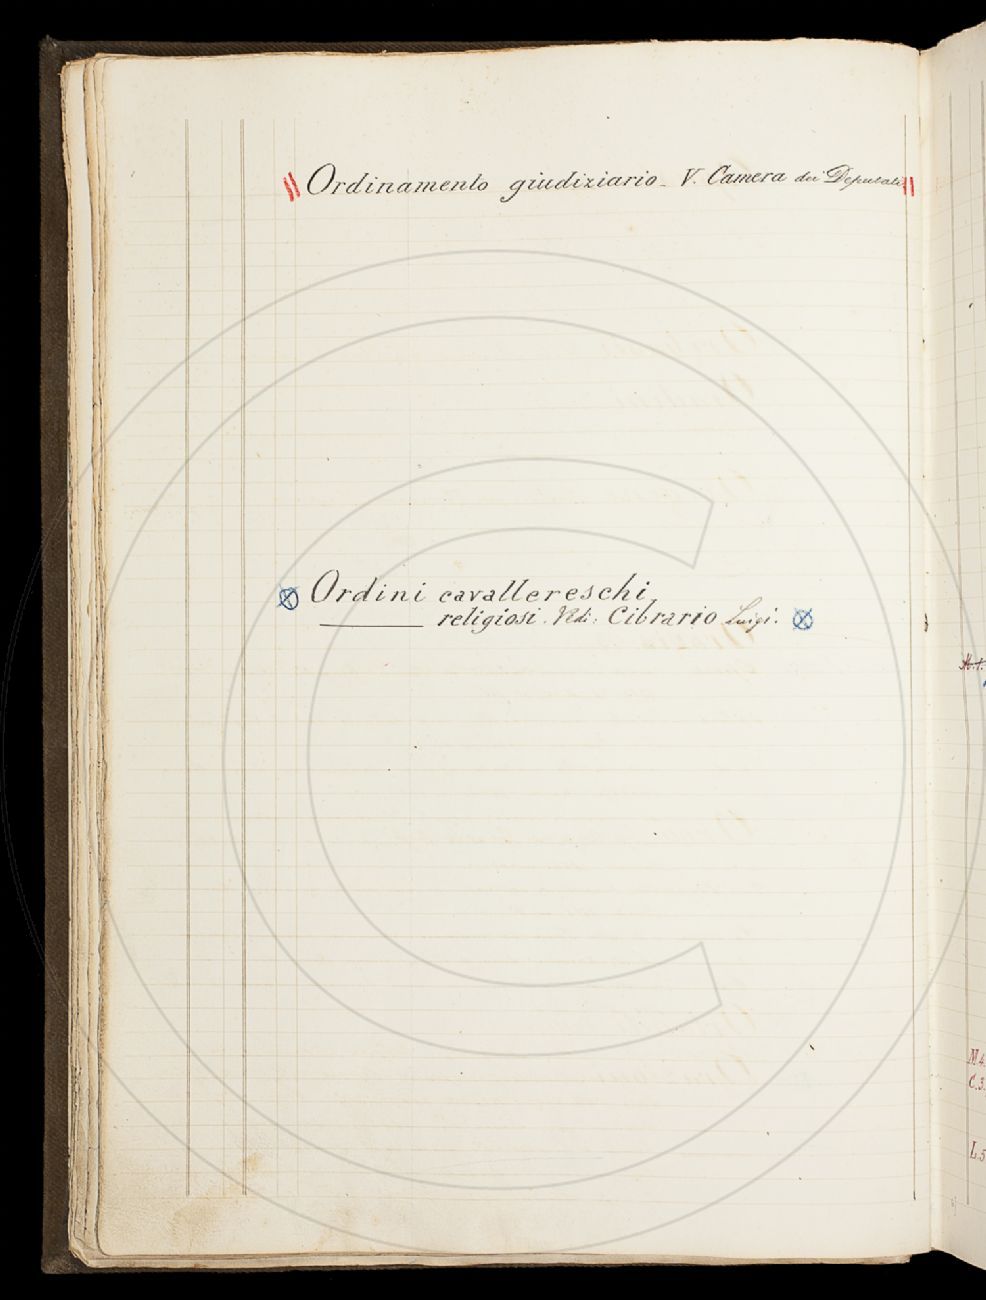 Ordinamento giudiziario - V. Camera dei Deputati
Ordini cavallereschi
religiosi. Vedi: Cibrario Luigi.
M.4.
C.3.
L.5